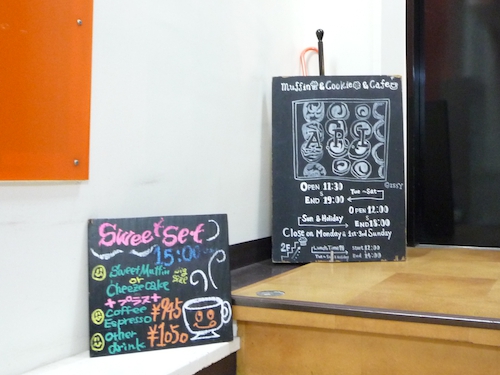 Muffin & Cookie & Cafe
OPEN 11:30
END 19:00
Tue~Sat
OPEN 12:00
Sun & Holiday
END 18:00
Close on Monday & 1st・3rd Sunday
2F
Lunch Time
Start 12:00
End
Sweet Set
15:00
Sweet Muffin
or
Cheese cake
+プラス+
Coffee
Espresso
¥945
Other
drink
¥1050